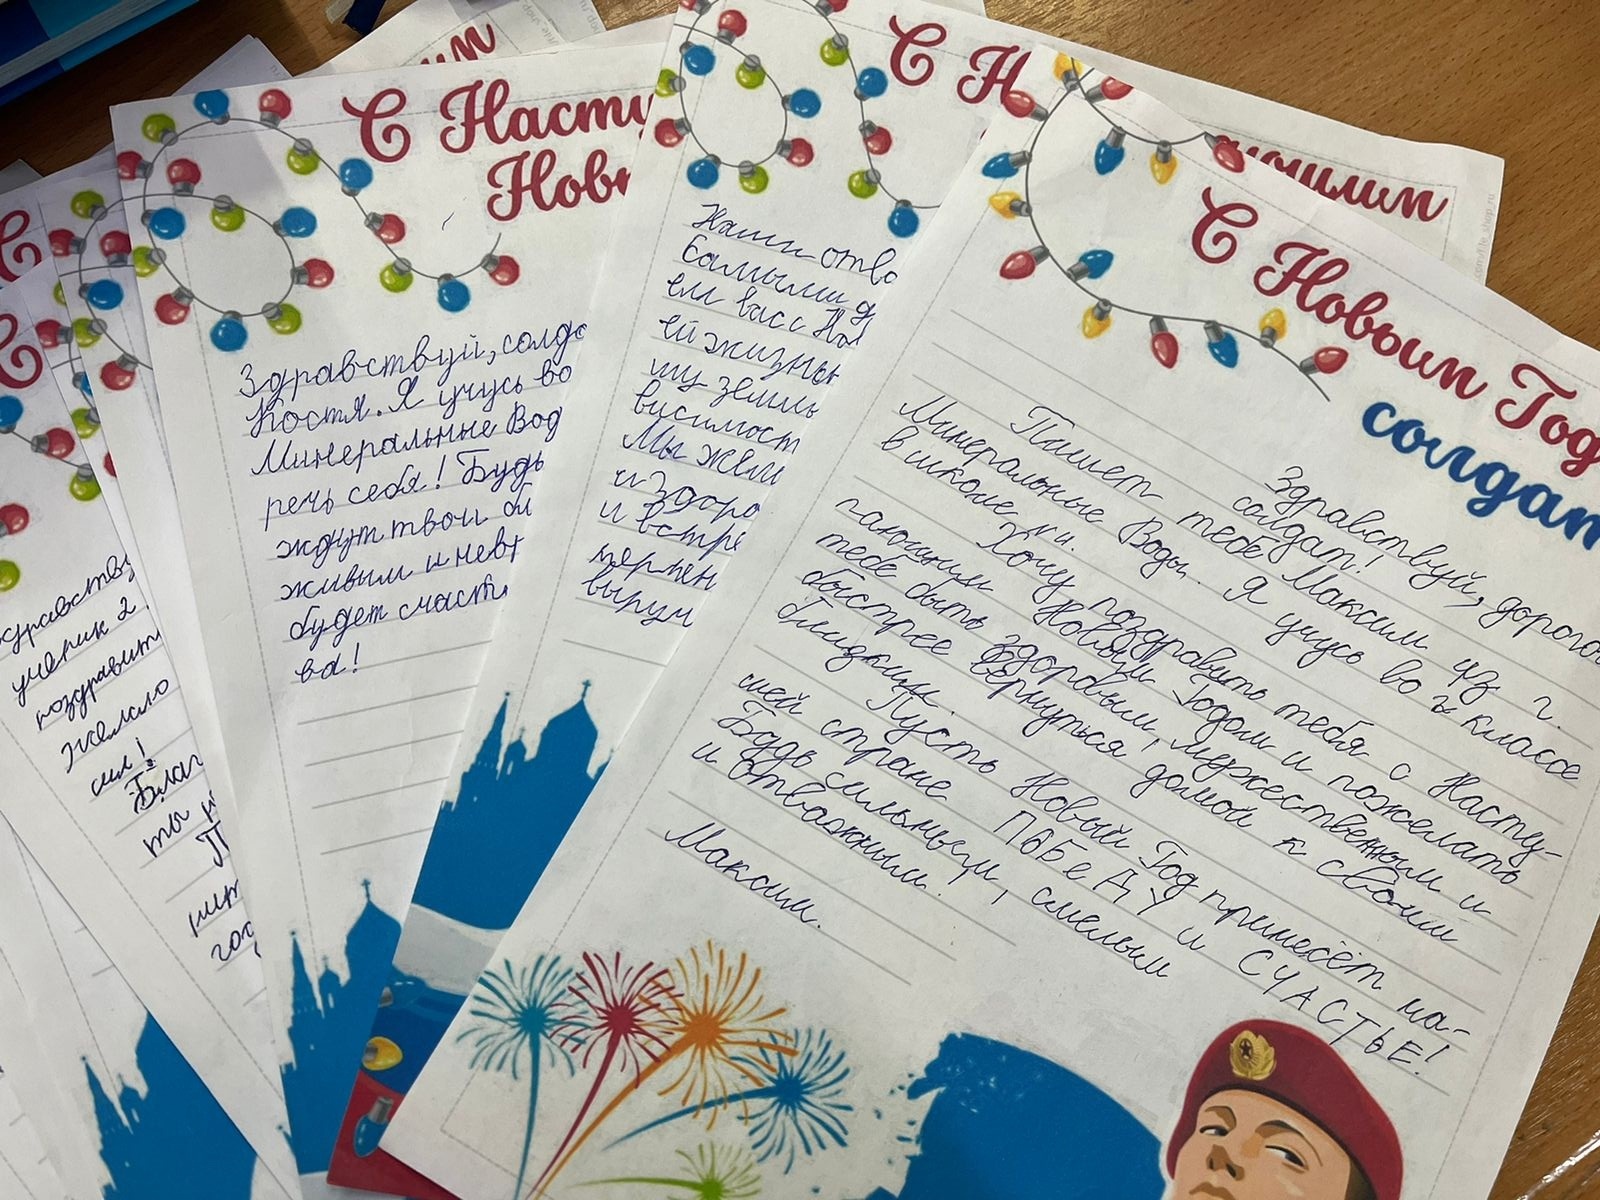 С Насту
Нов
С Н
ющим
С Новым Год
солдат
Здравствуй, дорого
солдат!
Пишет тебе Максим из г.
Минеральные Воды. Я учусь во 2 классе
в школе
Хочу поздравить тебя с Насту-
пающим Новым Годом и пожелать
тебе быть здоровым, мужественным и
быстрее вернуться домой к своим
близким.
Пусть Новый Год принесёт на-
шей стране ПОБЕДУ и СЧАСТЬЕ!
Будь сильным, смелым
и отважным.
Максим.
Наши отва
ем васс На
ей жизнь
шу землю
висимост
Мы жела
и здоро
и встре
Здравствуй, солда
Костя. Я учусь во
Минеральные Вод
речь себя! Будь
ждут твои бл
живым и нев
будет счаст
ва!
здравству
ученик 2
поздравит
желаю
сил!
Благ
ты
П